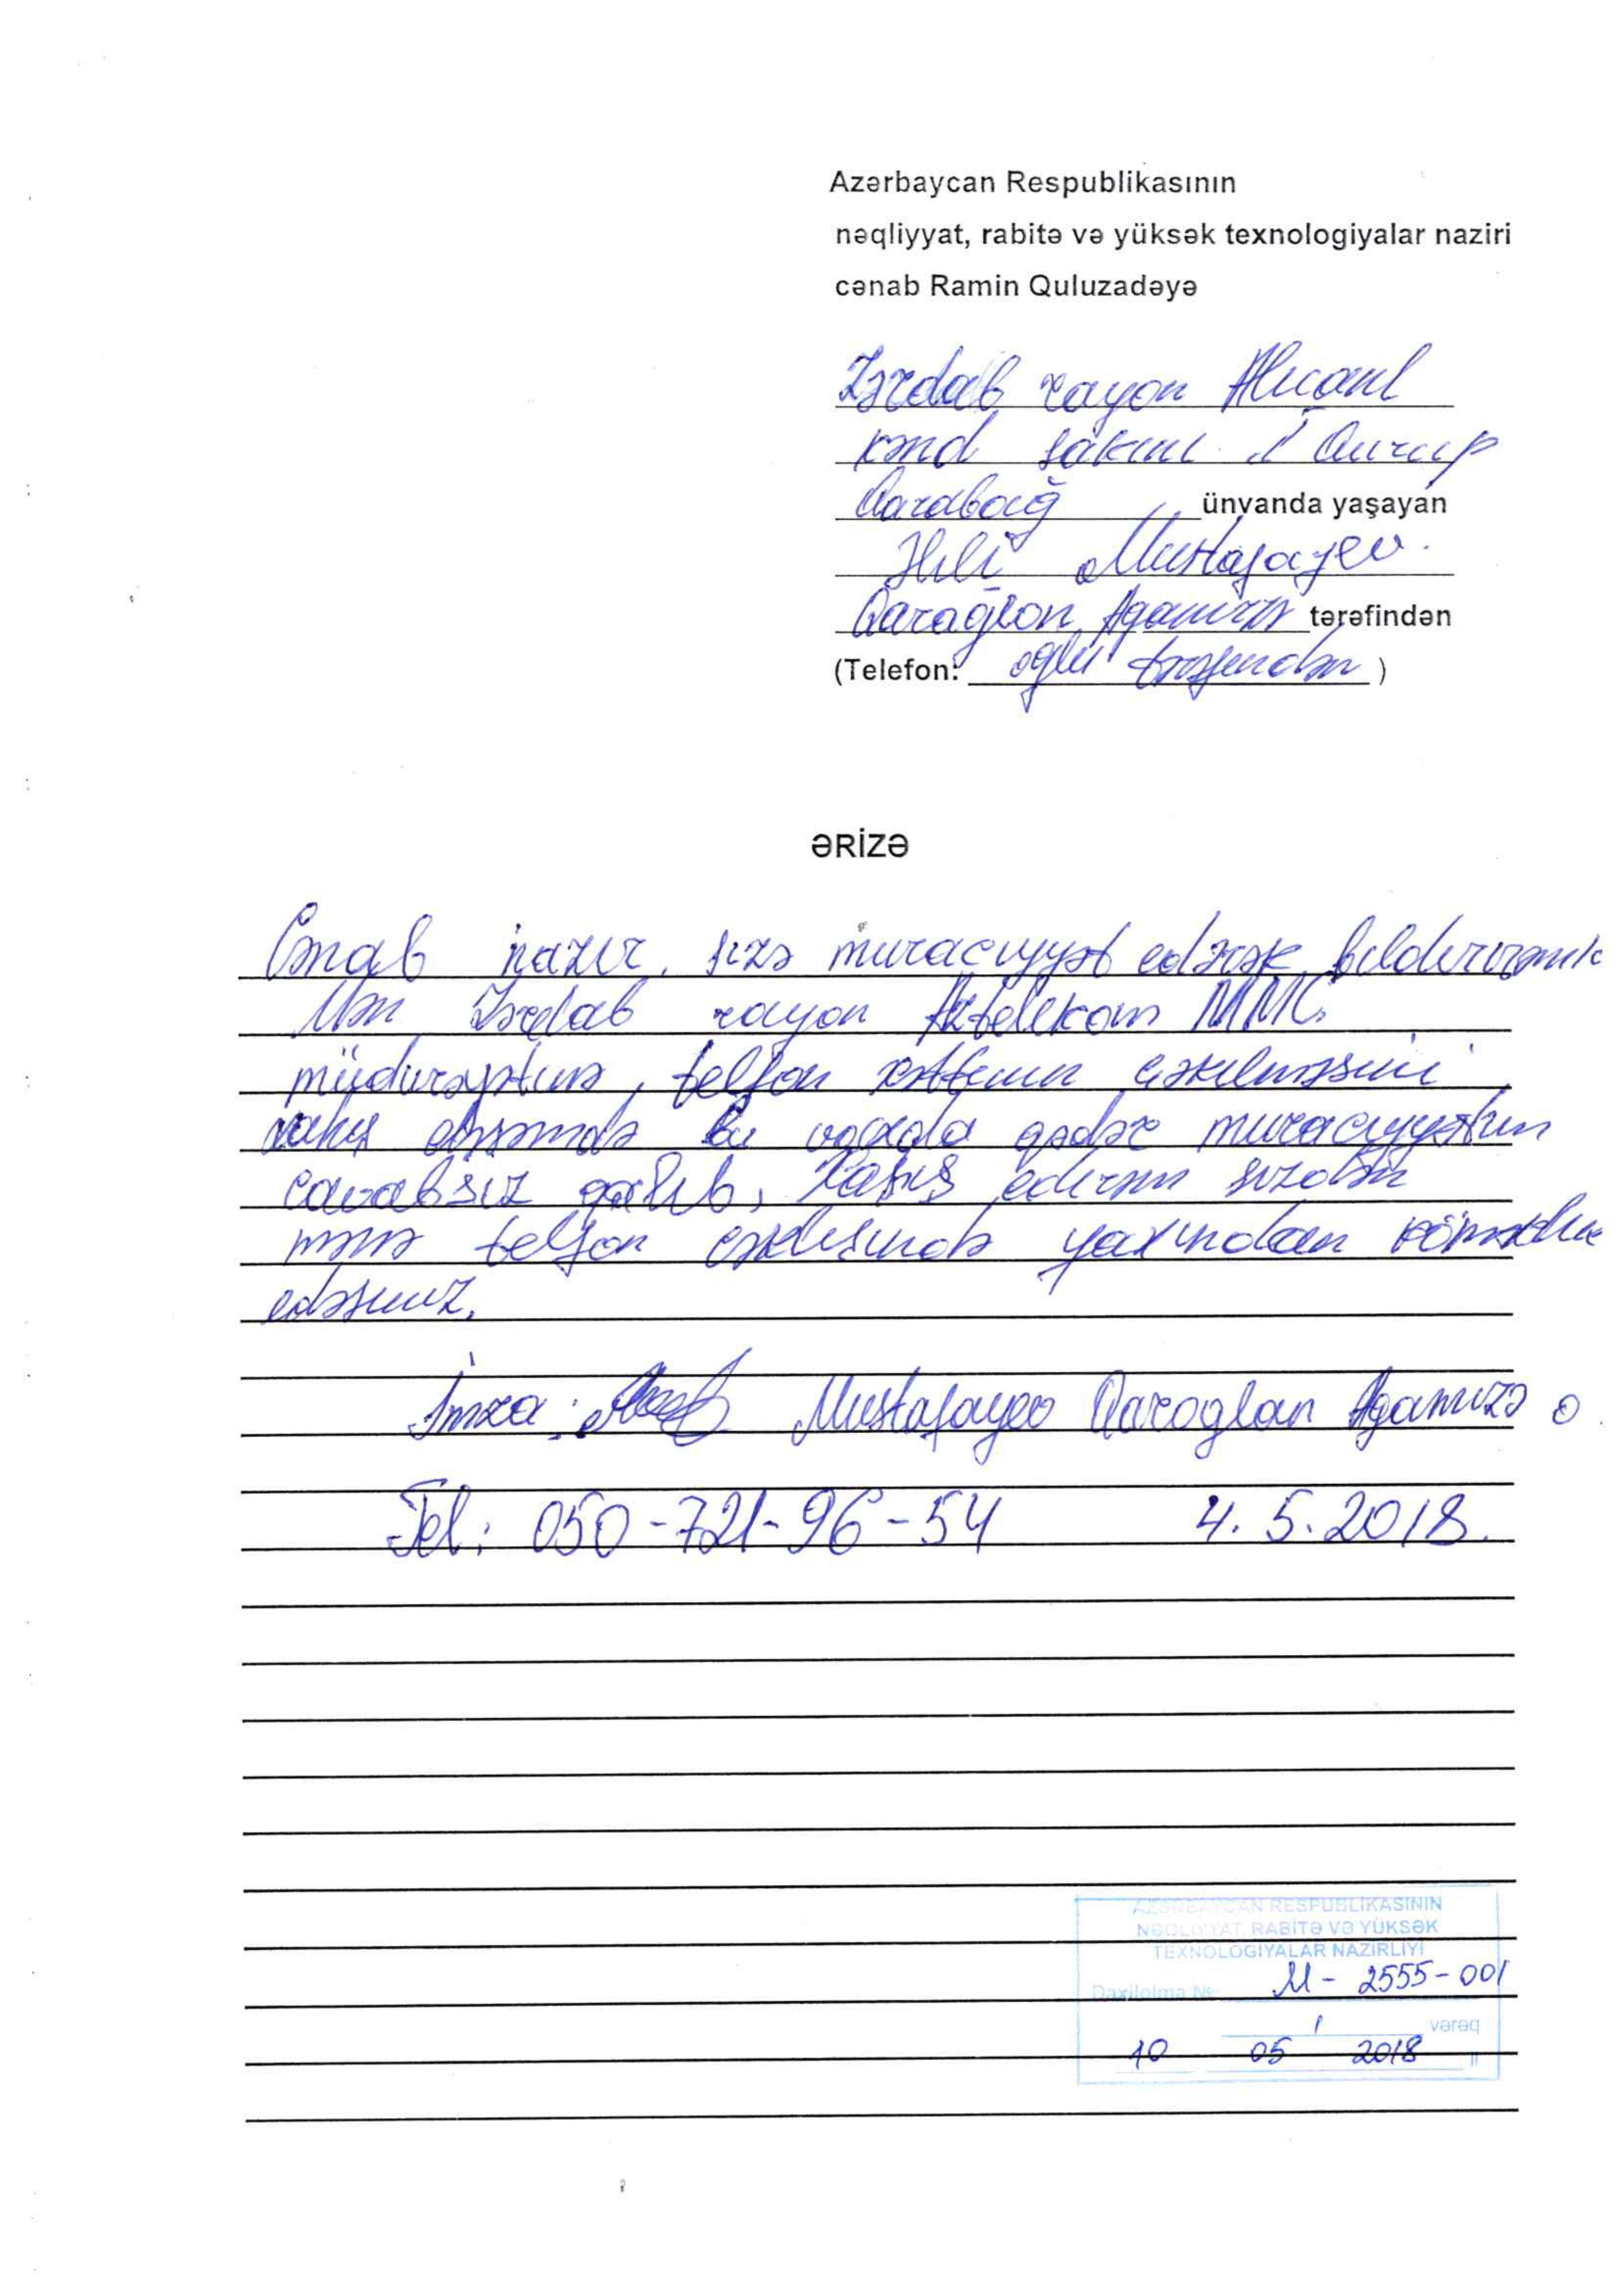 Azərbaycan Respublikasının
nəqliyyat, rabitə və yüksək texnologiyalar naziri
cənab Ramin Quluzadəyə
Zərdab rayon Alıcanl
kənd sakını I Qurup
Qarabağ ünvanda yaşayan
Əlili Mustafayev
Qarağlan Agamirzə tərəfindən
(Telefon: oglu tərəfindən )
ərizə
Cənab nazır, sizə muracıyyət edərək bıldırırəmki
Mən Zərdab rayon Aztelekom MMC.
müdurəyyətinə, telfon xəttının çəkılməsini
xahış etsəmdə bu vaxda qədər muracıyyətım
cavabsız qalıb, Xahış edırəm sızdən
mənə telfon çəkılışındə yaxından köməklık
edəsınız.
İmza: Mustafayev Qaroglan Agamirzə o
Tel: 050-721-96-54 4. 5. 2018.
AZƏRBAYCAN RESPUBLİKASININ
NƏQLİYYAT, RABİTƏ VƏ YÜKSƏK
TEXNOLOGİYALAR NAZİRLİYİ
Daxilolma № M- 2555-001
1 vərəq
10 05 2018 il